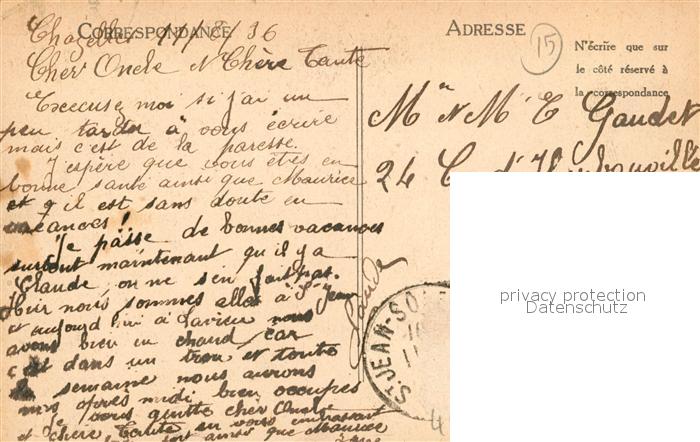 CORRESPONDANCE
Chazelles 11/8/36
Cher Oncle & Chère Tante
Excusez moi si j'ai un
peu tarder à vous écrire
mais c'est de la paresse.
J'espère que vous êtes en
bonne santé ainsi que Maurice
et qu'il est sans doute en
vacances!
Je passe de bonnes vacances
surtout maintenant qu'il y a
Claude, on ne s'en fait pas.
Hier nous sommes allé à St Jean
et aujourd'hui à Lavieu nous
avons bien eu chaud car
c'est dans un trou et toute
la semaine nous aurons
nos après midi bien occupés
Je vous quitte cher Oncle
et chère Tante en vous embrassant
ainsi que Maurice
ADRESSE
15
N'écrire que sur
le côté réservé à
la correspondance
Mr & Me E Gaudet
24
ST JEAN-SO
privacy protection
Datenschutz